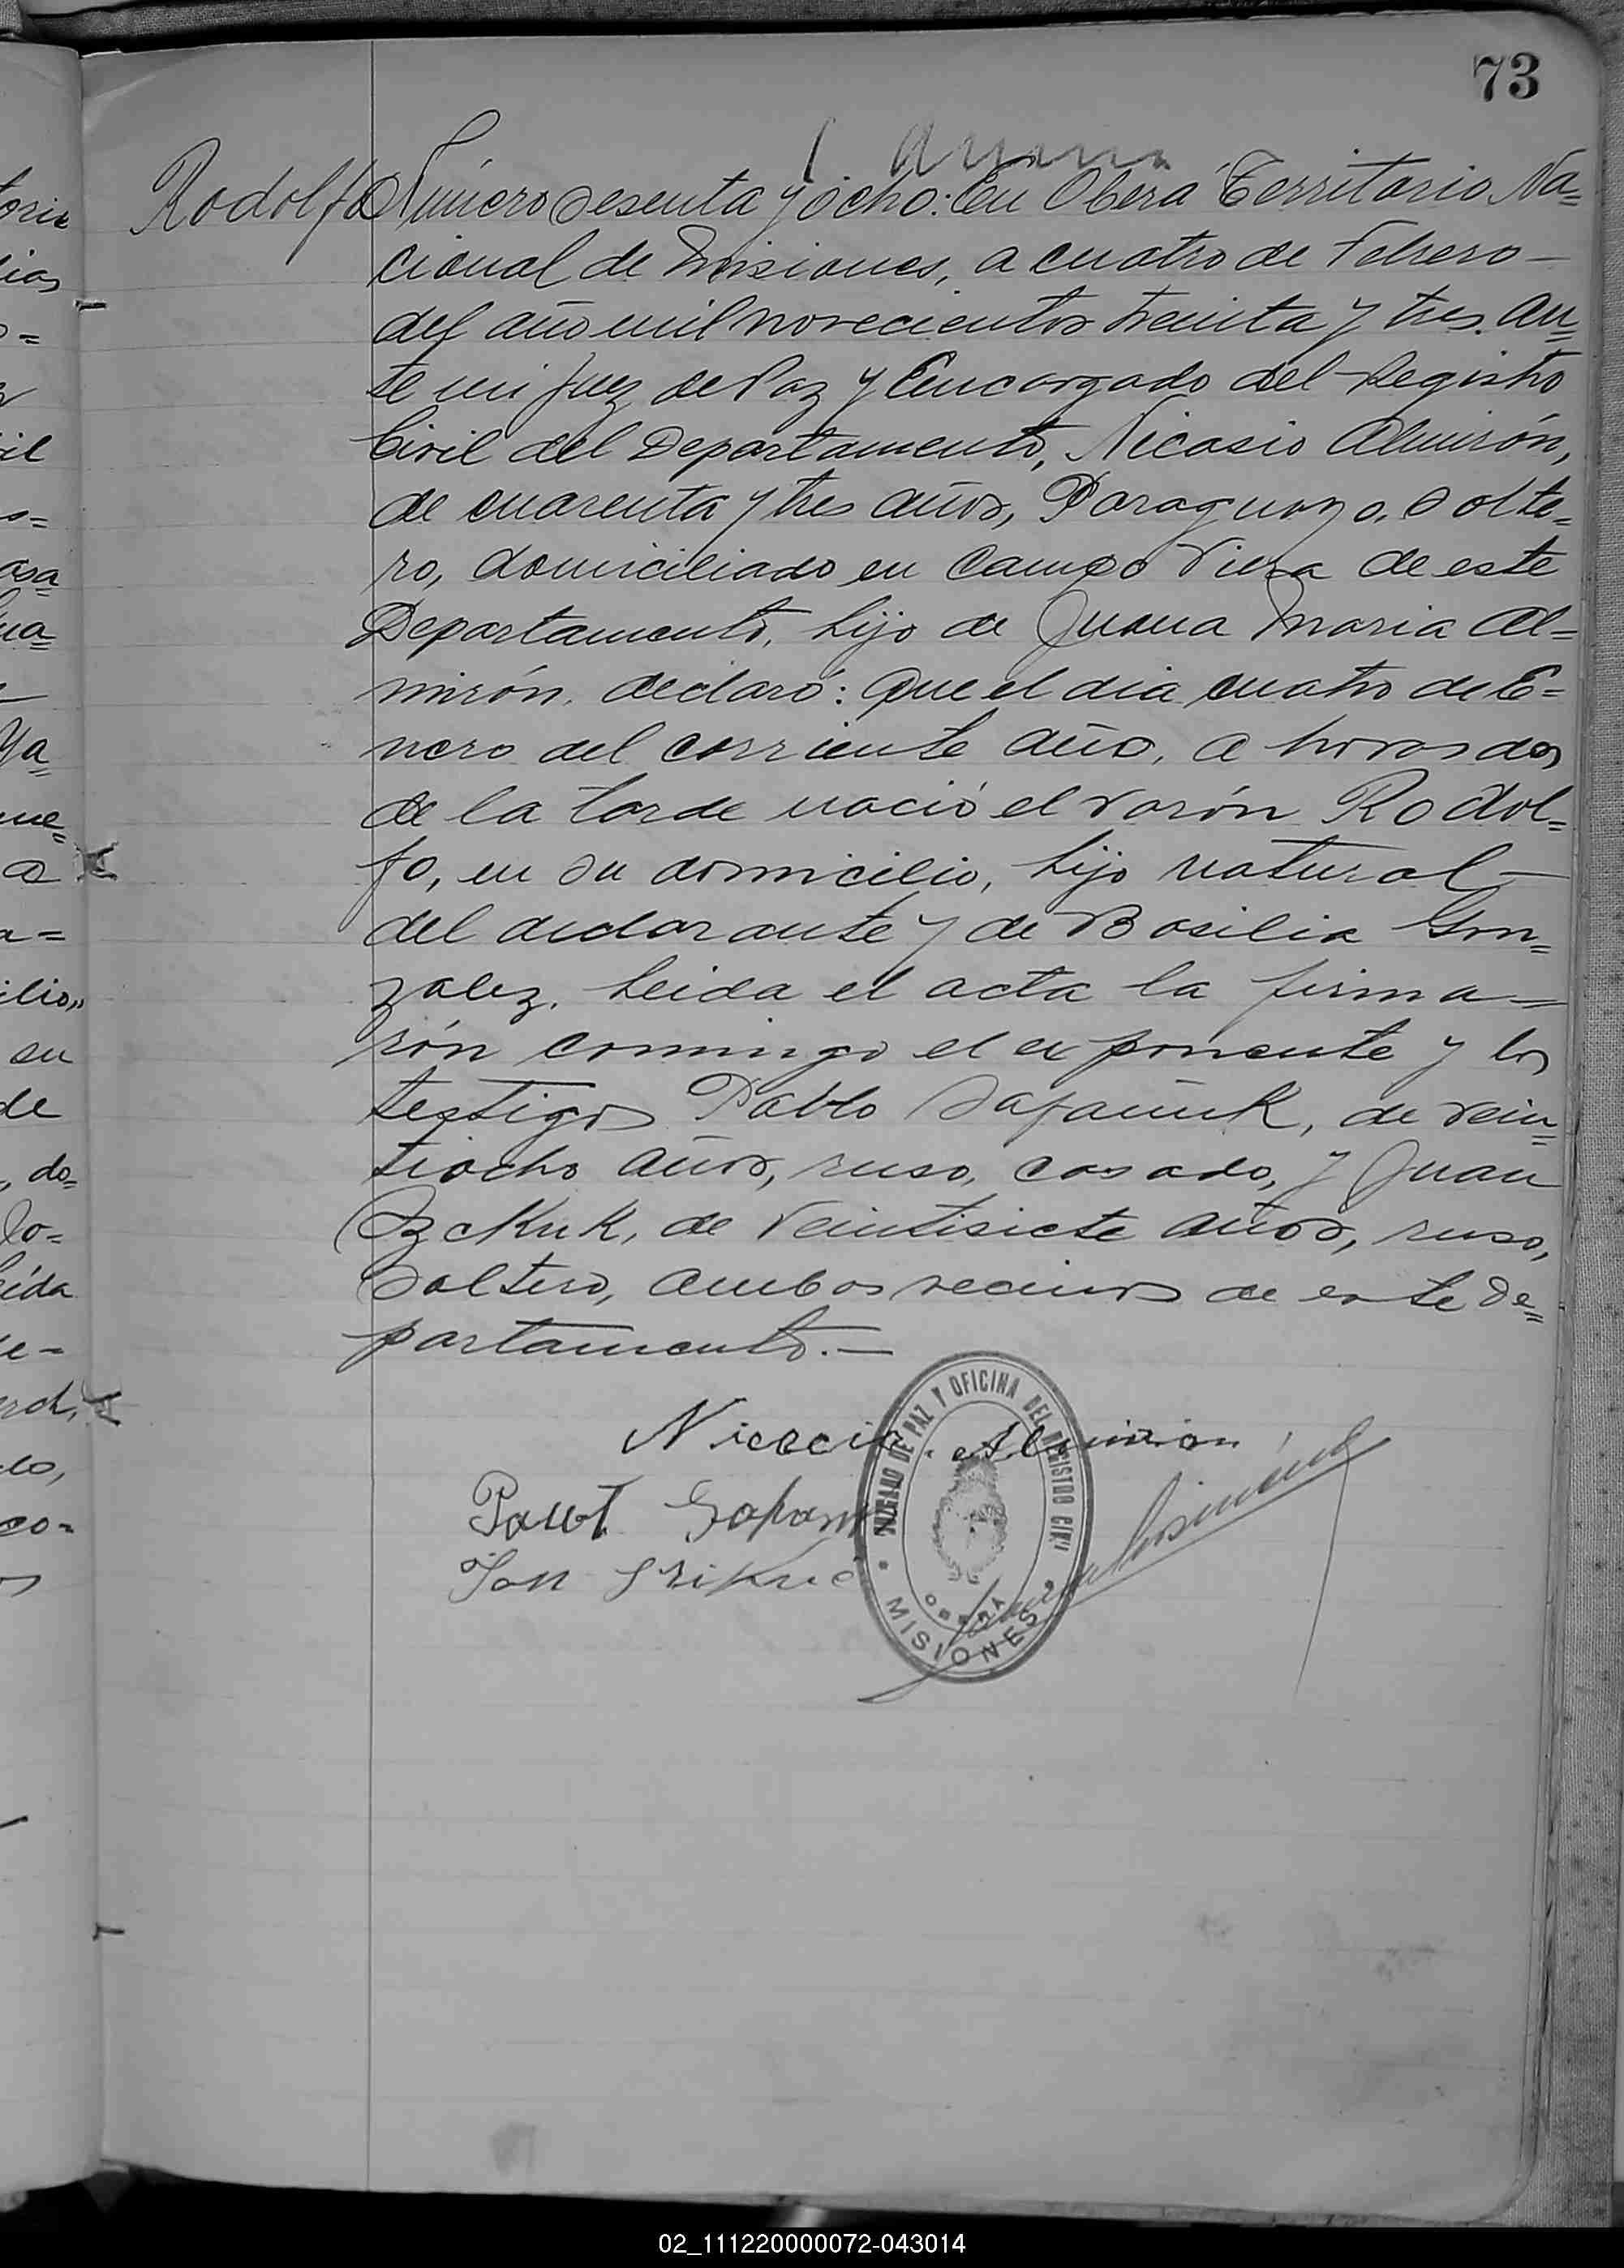 73
Rodolfo Número Sesenta y ocho: En Oberá Territorio Na=
cional de Misiones, a cuatro de Febrero—
del año mil novecientos treinta y tres. An=
te mi Juez de Paz y Encargado del Registro
Civil del Departamento, Nicasio Almirón,
de cuarenta y tres años, Paraguayo, Solte=
ro, domiciliado en Campo Viera de este
Departamento, hijo de Juana Maria Al=
mirón, declaró: Que el dia cuatro de E=
nero del corriente año, a horas dos
de la tarde nació el varón Rodol=
fo, en su domicilio, hijo natural—
del declarante y de Basilia Gon=
zalez. Leida el acta la firma=
rón conmigo el exponente y los
testigos Pablo, de vein=
tiocho años, ruso, casado, y Juan
de veintisiete años, ruso,
Soltero, ambos vecinos de este De=
partamento.—
Nicacio Almirón
JUZGADO DE PAZ Y OFICINA DEL REGISTRO CIVIL
OBERA
MISIONES
02_111220000072-043014